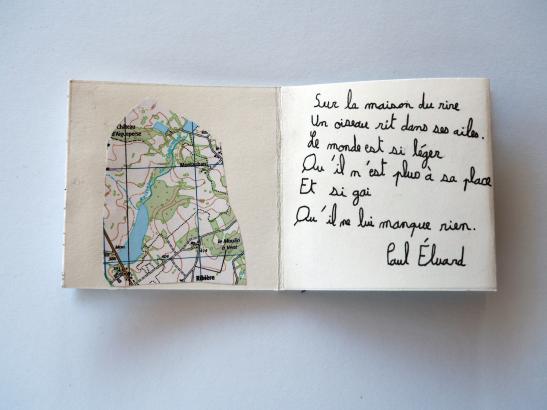 Château
d'Aigueperse
le Moulin
à Vent
Ribière
Sur la maison du rire
Un oiseau rit dans ses ailes.
Le monde est si léger
Qu'il n'est plus à sa place
Et si gai
Qu'il ne lui manque rien.
Paul Éluard